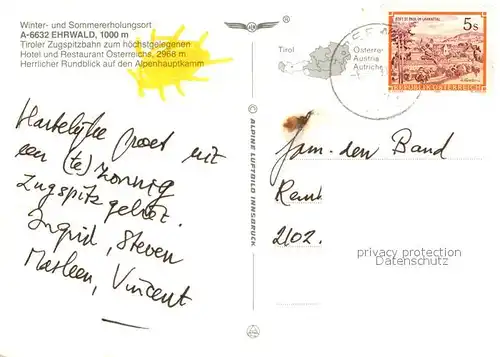 Winter- und Sommererholungsort
A-6632 EHRWALD, 1000 m
Tiroler Zugspitzbahn zum höchstgelegenen
Hotel und Restaurant Österreichs, 2968 m
Herrlicher Rundblick auf den Alpenhauptkamm
Hartelijke groet uit
een (te) zonnig
Zugspitz gebied.
Ingrid, Steven
Marleen, Vincent
© ALPINE LUFTBILD INNSBRUCK
Tirol
Österre
Austria
Autriche
STIFT ST. PAUL IM LAVANTTAL
5s
REPUBLIK ÖSTERREICH
Fam. den Band
2102.
privacy protection
Datenschutz